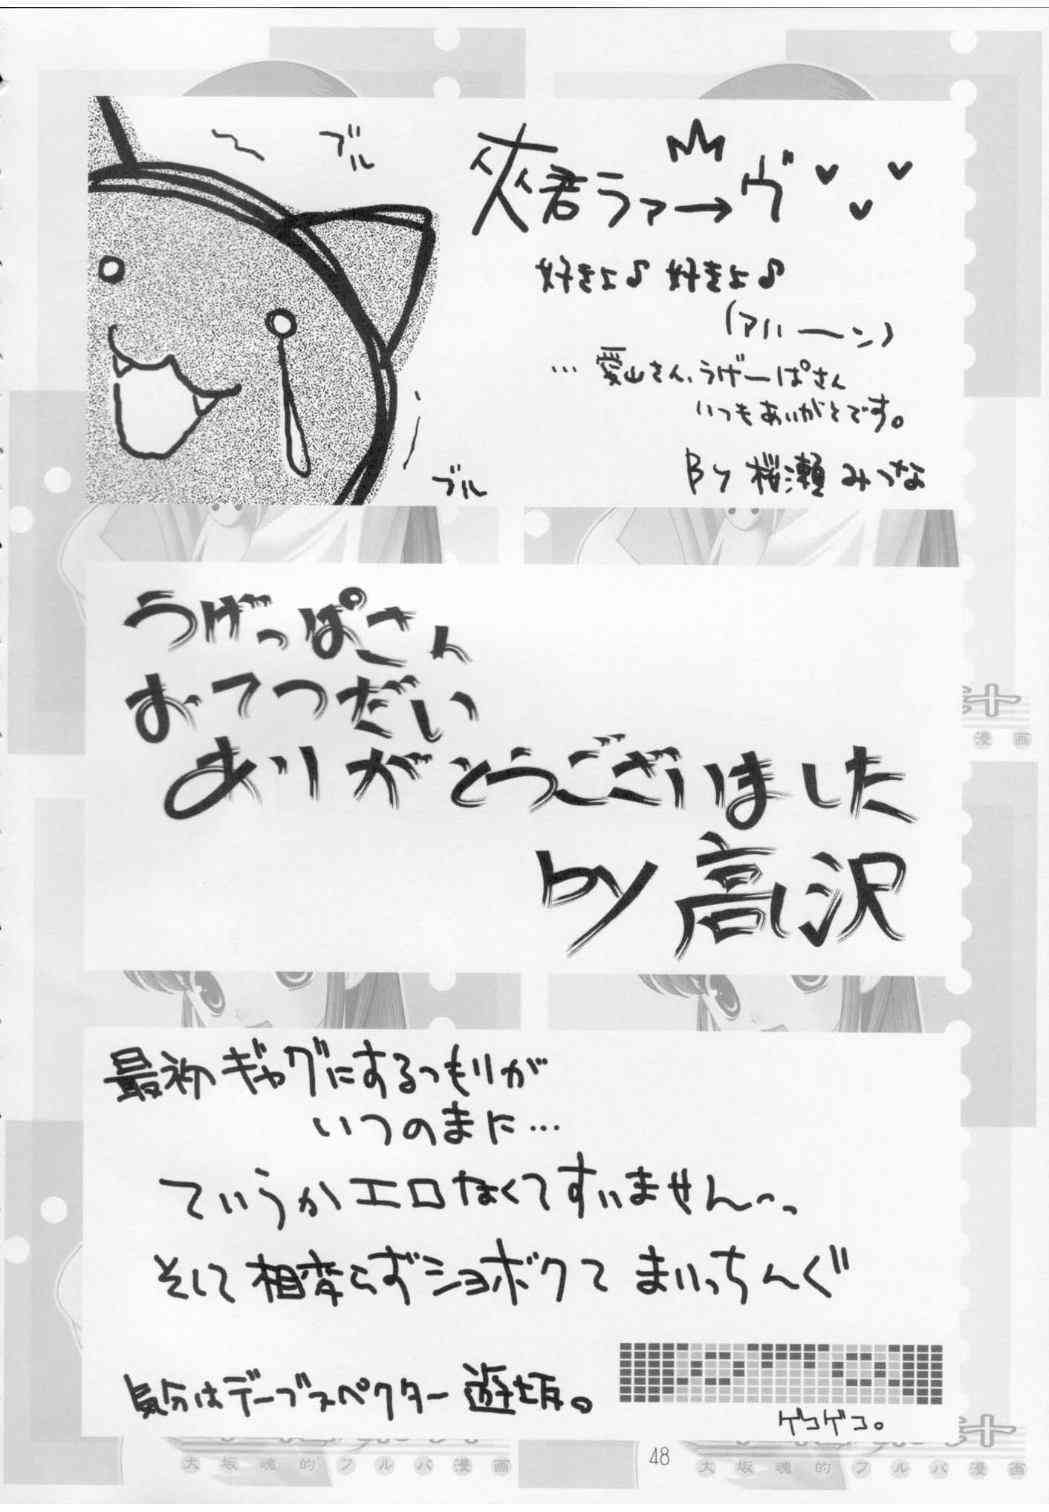 ブル
夾君ラァ→ヴ
好きよ♪ 好きよ♪
(アハーーン)
… 愛山さん、うげーぱさん
いつもありがとです。
By 桜瀬 みつな
ブル
うげっぱさん
おてつだい
ありがとうございました
by 高沢
最初ギャグにするつもりが
いつのまに…
ていうかエロなくてすいません〜っ
そして相変らずショボクて まいっちんぐ
気分はデーブスペクター 遊坂。
ゲコゲコ。
漫画
大坂魂的フルパ漫画
48
大坂魂的フルパ漫画